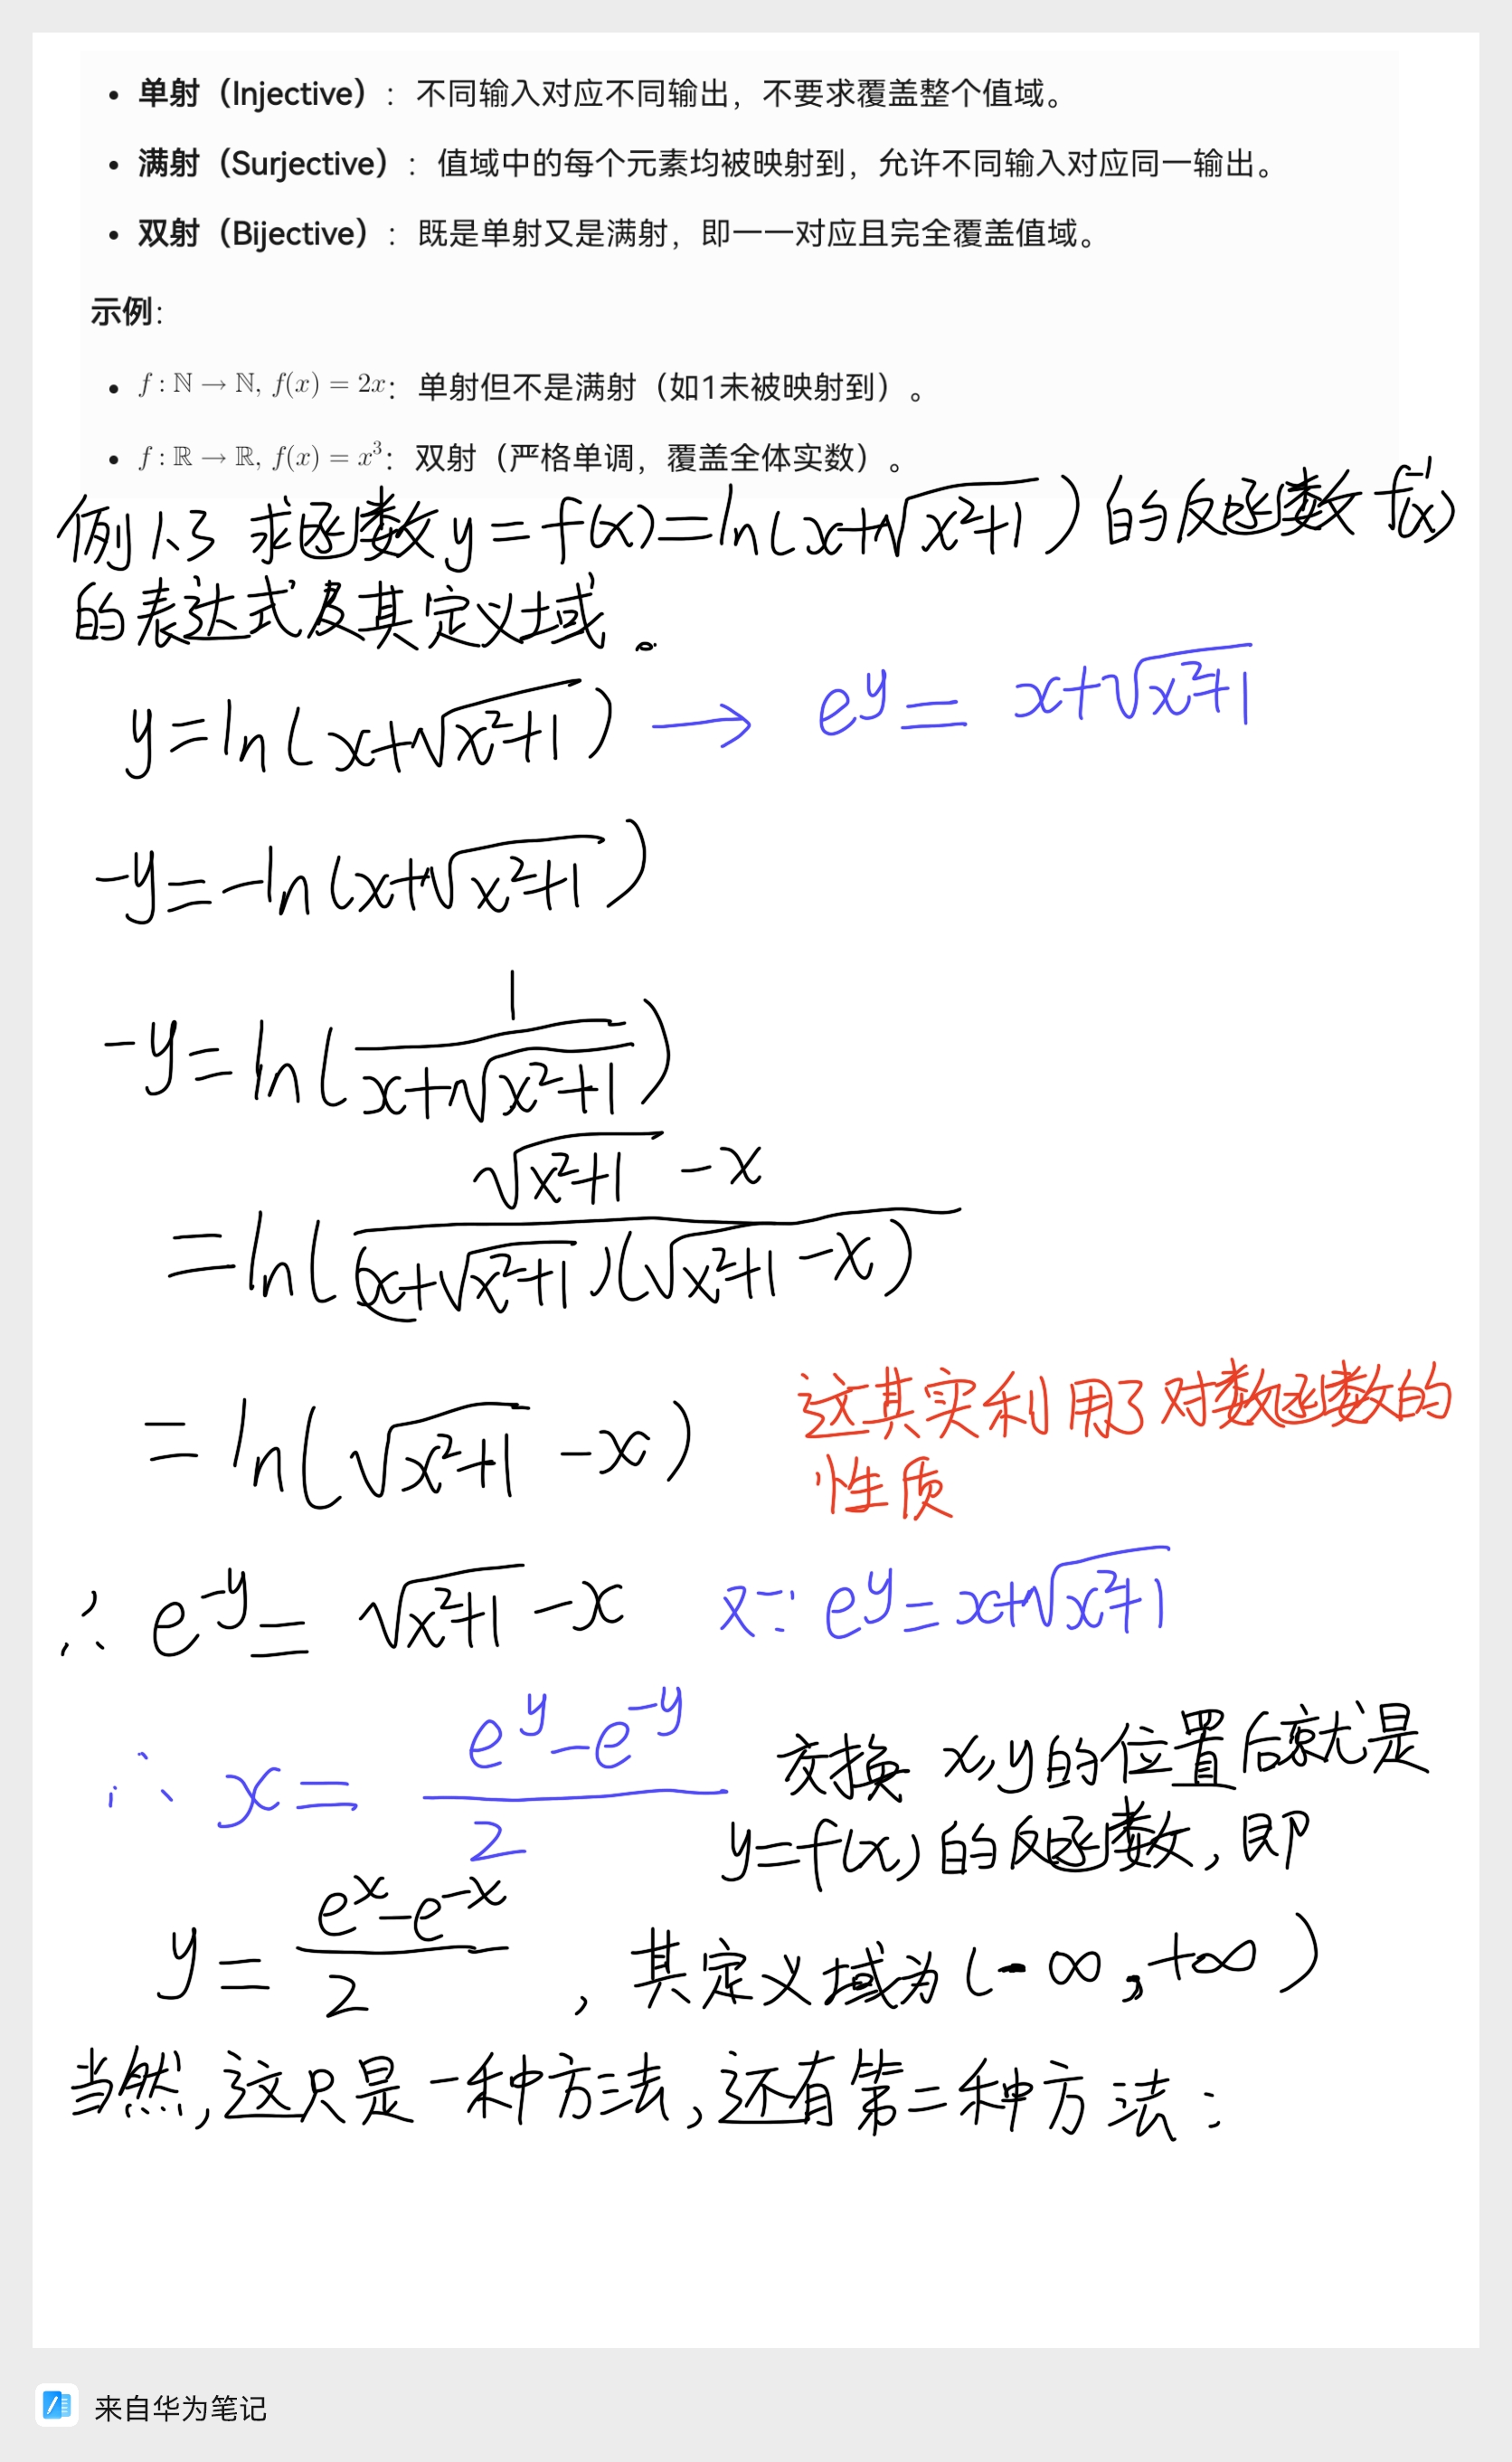 • 单射（Injective）：不同输入对应不同输出，不要求覆盖整个值域。
• 满射（Surjective）：值域中的每个元素均被映射到，允许不同输入对应同一输出。
• 双射（Bijective）：既是单射又是满射，即一一对应且完全覆盖值域。
示例：
• f : ℕ → ℕ, f(x) = 2x：单射但不是满射（如1未被映射到）。
• f : ℝ → ℝ, f(x) = x³：双射（严格单调，覆盖全体实数）。
例1.3 求函数y=f(x)=ln(x+√(x²+1))的反函数f⁻¹(x)
的表达式及其定义域。
y=ln(x+√(x²+1)) → e^y = x+√(x²+1)
-y=-ln(x+√(x²+1))
-y=ln(1/(x+√(x²+1)))
=ln((√(x²+1)-x)/((x+√(x²+1))(√(x²+1)-x)))
=ln(√(x²+1)-x) 这其实利用了对数函数的
性质
∴ e^(-y) = √(x²+1)-x 又∵ e^y=x+√(x²+1)
∴ x=(e^y-e^(-y))/2 交换x,y的位置后就是
y=f(x)的反函数,即
y=(e^x-e^(-x))/2 ,其定义域为(-∞,+∞)
当然,这只是一种方法,还有第二种方法:
来自华为笔记